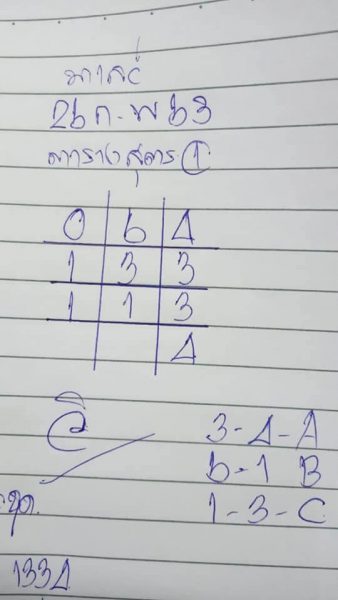 26 ก.พ 63
ตารางสูตร ①
0 6 4
1 3 3
1 1 3
4
3-4-A
6-1 B
1-3-C
1334